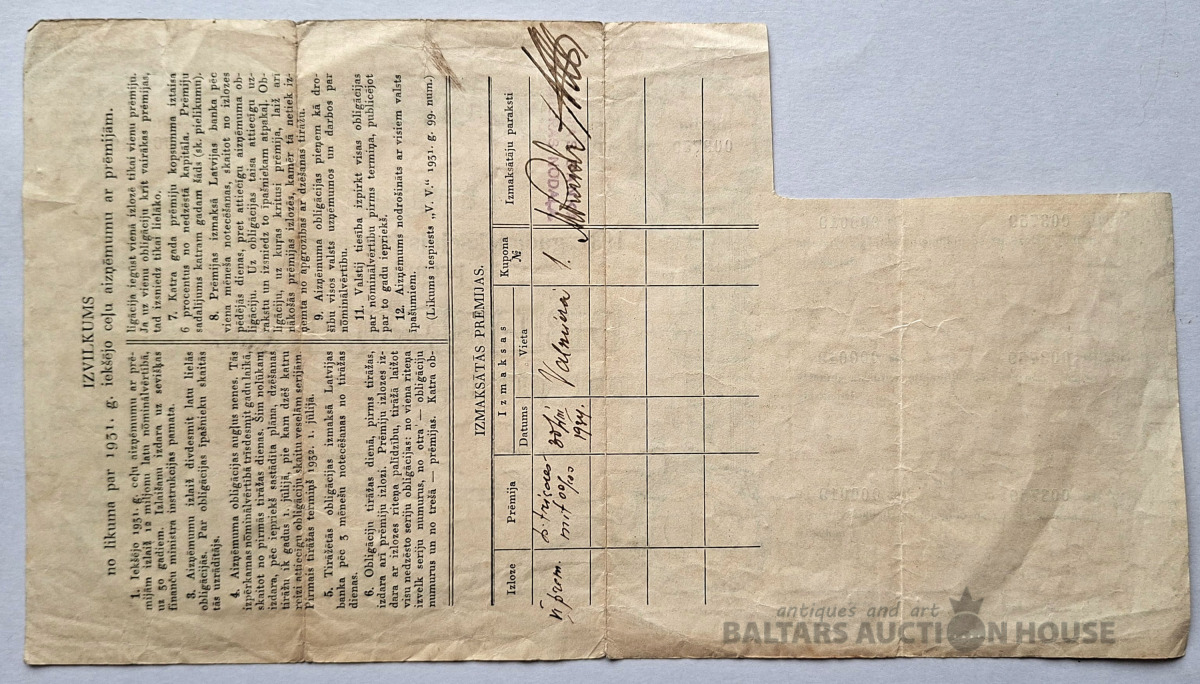 IZVILKUMS
no likuma par 1931. g. iekšējo ceļu aizņēmumu ar prēmijām.
1. Iekšējo 1931. g. ceļu aizņēmumu ar prē-
mijām izlaiž 12 miljonu latu nōminālvērtībā,
uz 30 gadiem. Izlaišanu izdara uz sevišķas
finanču ministra instrukcijas pamata.
3. Aizņēmumu izlaiž divdesmit latu lielās
obligācijās. Par obligācijas īpašnieku skaitās
tās uzrādītājs.
4. Aizņēmuma obligācijas augļus nenes. Tās
izpērkamas nōminālvērtībā trīsdesmit gadu laikā,
skaitot no pirmās tirāžas dienas. Šim nolūkam
izdara, pēc iepriekš sastādīta plāna, dzēšanas
tirāžu ik gadus 1. jūlijā, pie kam dzēš katru
reizi attiecīgu obligāciju skaitu veselām serijām.
Pirmais tirāžas termiņš 1932. 1. jūlijā.
5. Tirāžētās obligācijas izmaksā Latvijas
banka pēc 3 mēnešu notecēšanas no tirāžas
dienas.
6. Obligāciju tirāžas dienā, pirms tirāžas,
izdara arī prēmiju izlozi. Prēmiju izlozes iz-
dara ar izlozes riteņa palīdzību, tirāžā laižot
visu nedzēsto seriju obligācijas: no viena riteņa
izvelk seriju numurus, no otra — obligāciju
numurus un no trešā — prēmijas. Katra ob-
ligācija iegūst vienā izlozē tikai vienu prēmiju.
Ja uz vienu obligāciju krīt vairākas prēmijas,
tad izsniedz tikai lielāko.
7. Katra gada prēmiju kopsumma iztaisa
6 procentus no nedzēstā kapitāla. Prēmiju
sadalījums katram gadam šāds (sk. pielikumu).
8. Prēmijas izmaksā Latvijas banka pēc
viena mēneša notecēšanas, skaitot no izlozes
pēdējās dienas, pret attiecīgu aizņēmuma ob-
ligāciju. Uz obligācijas taisa attiecīgu uz-
rakstu un izsniedz to īpašniekam atpakaļ. Ob-
ligāciju, uz kuŗas kritusi prēmija, laiž arī
nākošās prēmijas izlozēs, kamēr tā netiek iz-
ņemta no apgrozības ar dzēšanas tirāžu.
9. Aizņēmuma obligācijas pieņem kā dro-
šību visos valsts uzņēmumos un darbos par
nōminālvērtību.
11. Valstij tiesība izpirkt visas obligācijas
par nōminālvērtību pirms termiņa, publicējot
par to gadu iepriekš.
12. Aizņēmums nodrošināts ar visiem valsts
īpašumiem.
(Likums iespiests „V. V.“ 1931. g. 99. num.)
IZMAKSĀTĀS PRĒMIJAS.
Izloze Prēmija Izmaksas Kupona № Izmaksātāju paraksti
Datums Vieta
Valmierā 1.
1934.
antiques and art
BALTARS AUCTION HOUSE